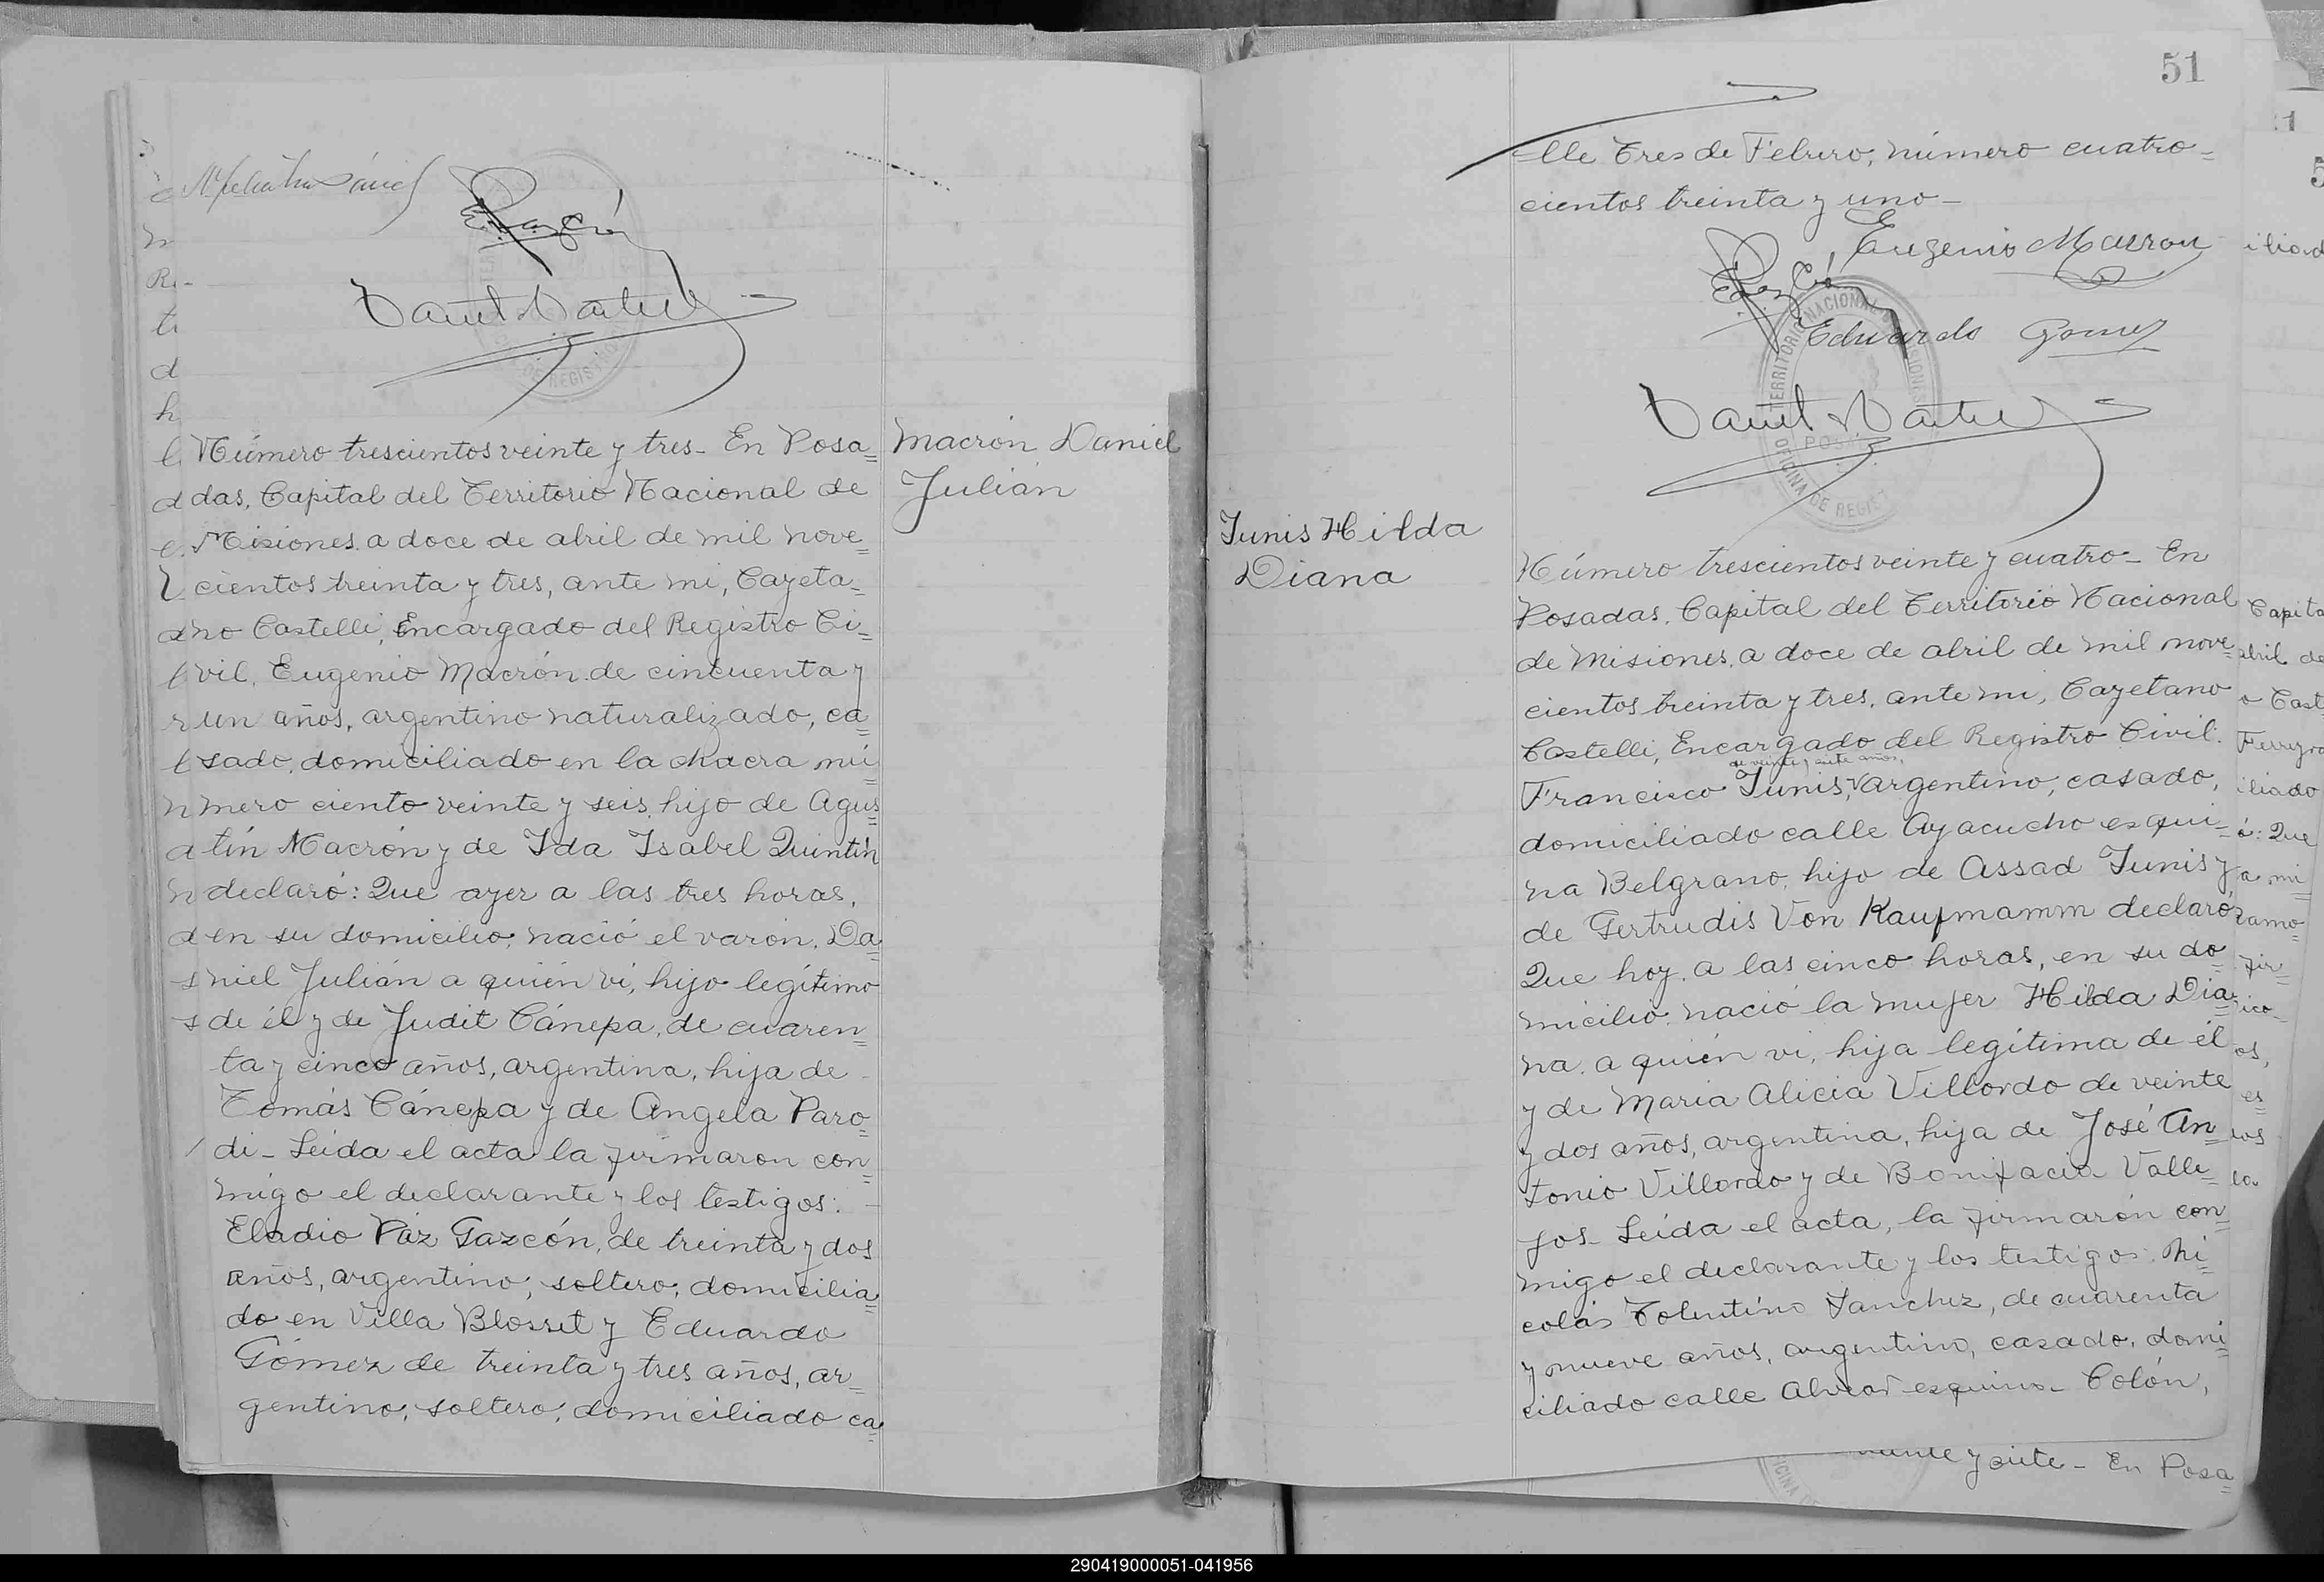 Número trescientos veinte y tres - En Posa=
das, Capital del Territorio Nacional de
Misiones a doce de abril de mil nove=
cientos treinta y tres, ante mi, Cayeta=
no Castelli, Encargado del Registro Ci=
vil, Eugenio Macrón de cincuenta y
un años, argentino naturalizado, ca=
sado, domiciliado en la chacra nú=
mero ciento veinte y seis, hijo de Agus=
tín Macrón y de Ida Isabel Quintín
declaró: Que ayer a las tres horas,
en su domicilio, nació el varón, Da=
niel Julián a quién vi, hijo legítimo
de él y de Judit Cánepa, de cuaren=
ta y cinco años, argentina, hija de
Tomás Cánepa y de Angela Paro=
di - Leida el acta la firmaron con=
migo el declarante y los testigos:
Eladio Páz Gazcón, de treinta y dos
años, argentino, soltero, domicilia=
do en Villa Blosset y Eduardo
Gómez de treinta y tres años, ar=
gentino, soltero, domiciliado ca=
Macrón Daniel
Julián
51
lle Tres de Febrero, número cuatro=
cientos treinta y uno -
Eugenio Macron
Eduardo Gomez
TERRITORIO NACIONAL DE MISIONES
POSADAS
OFICINA DE REGISTRO
Junis Hilda
Diana
Número trescientos veinte y cuatro - En
Posadas, Capital del Territorio Nacional
de Misiones, a doce de abril de mil nove=
cientos treinta y tres, ante mi, Cayetano
Castelli, Encargado del Registro Civil.
de veinte y siete años,
Francisco Junis, argentino, casado,
domiciliado calle Ayacucho esqui=
na Belgrano, hijo de Assad Junis y
de Gertrudis Von Kaupmamm declaró:
Que hoy, a las cinco horas, en su do=
micilio, nació la mujer Hilda Dia=
na, a quién vi, hija legítima de él
y de Maria Alicia Villordo de veinte
y dos años, argentina, hija de José An=
tonio Villordo y de Bonifacia Valle=
jos - Leida el acta, la firmarón con=
migo el declarante y los testigos: Ni=
colás Tolentino Sanchez, de cuarenta
y nueve años, argentino, casado, domi=
ciliado calle Alvear esquina - Colón,
y siete - En Posa=
290419000051-041956